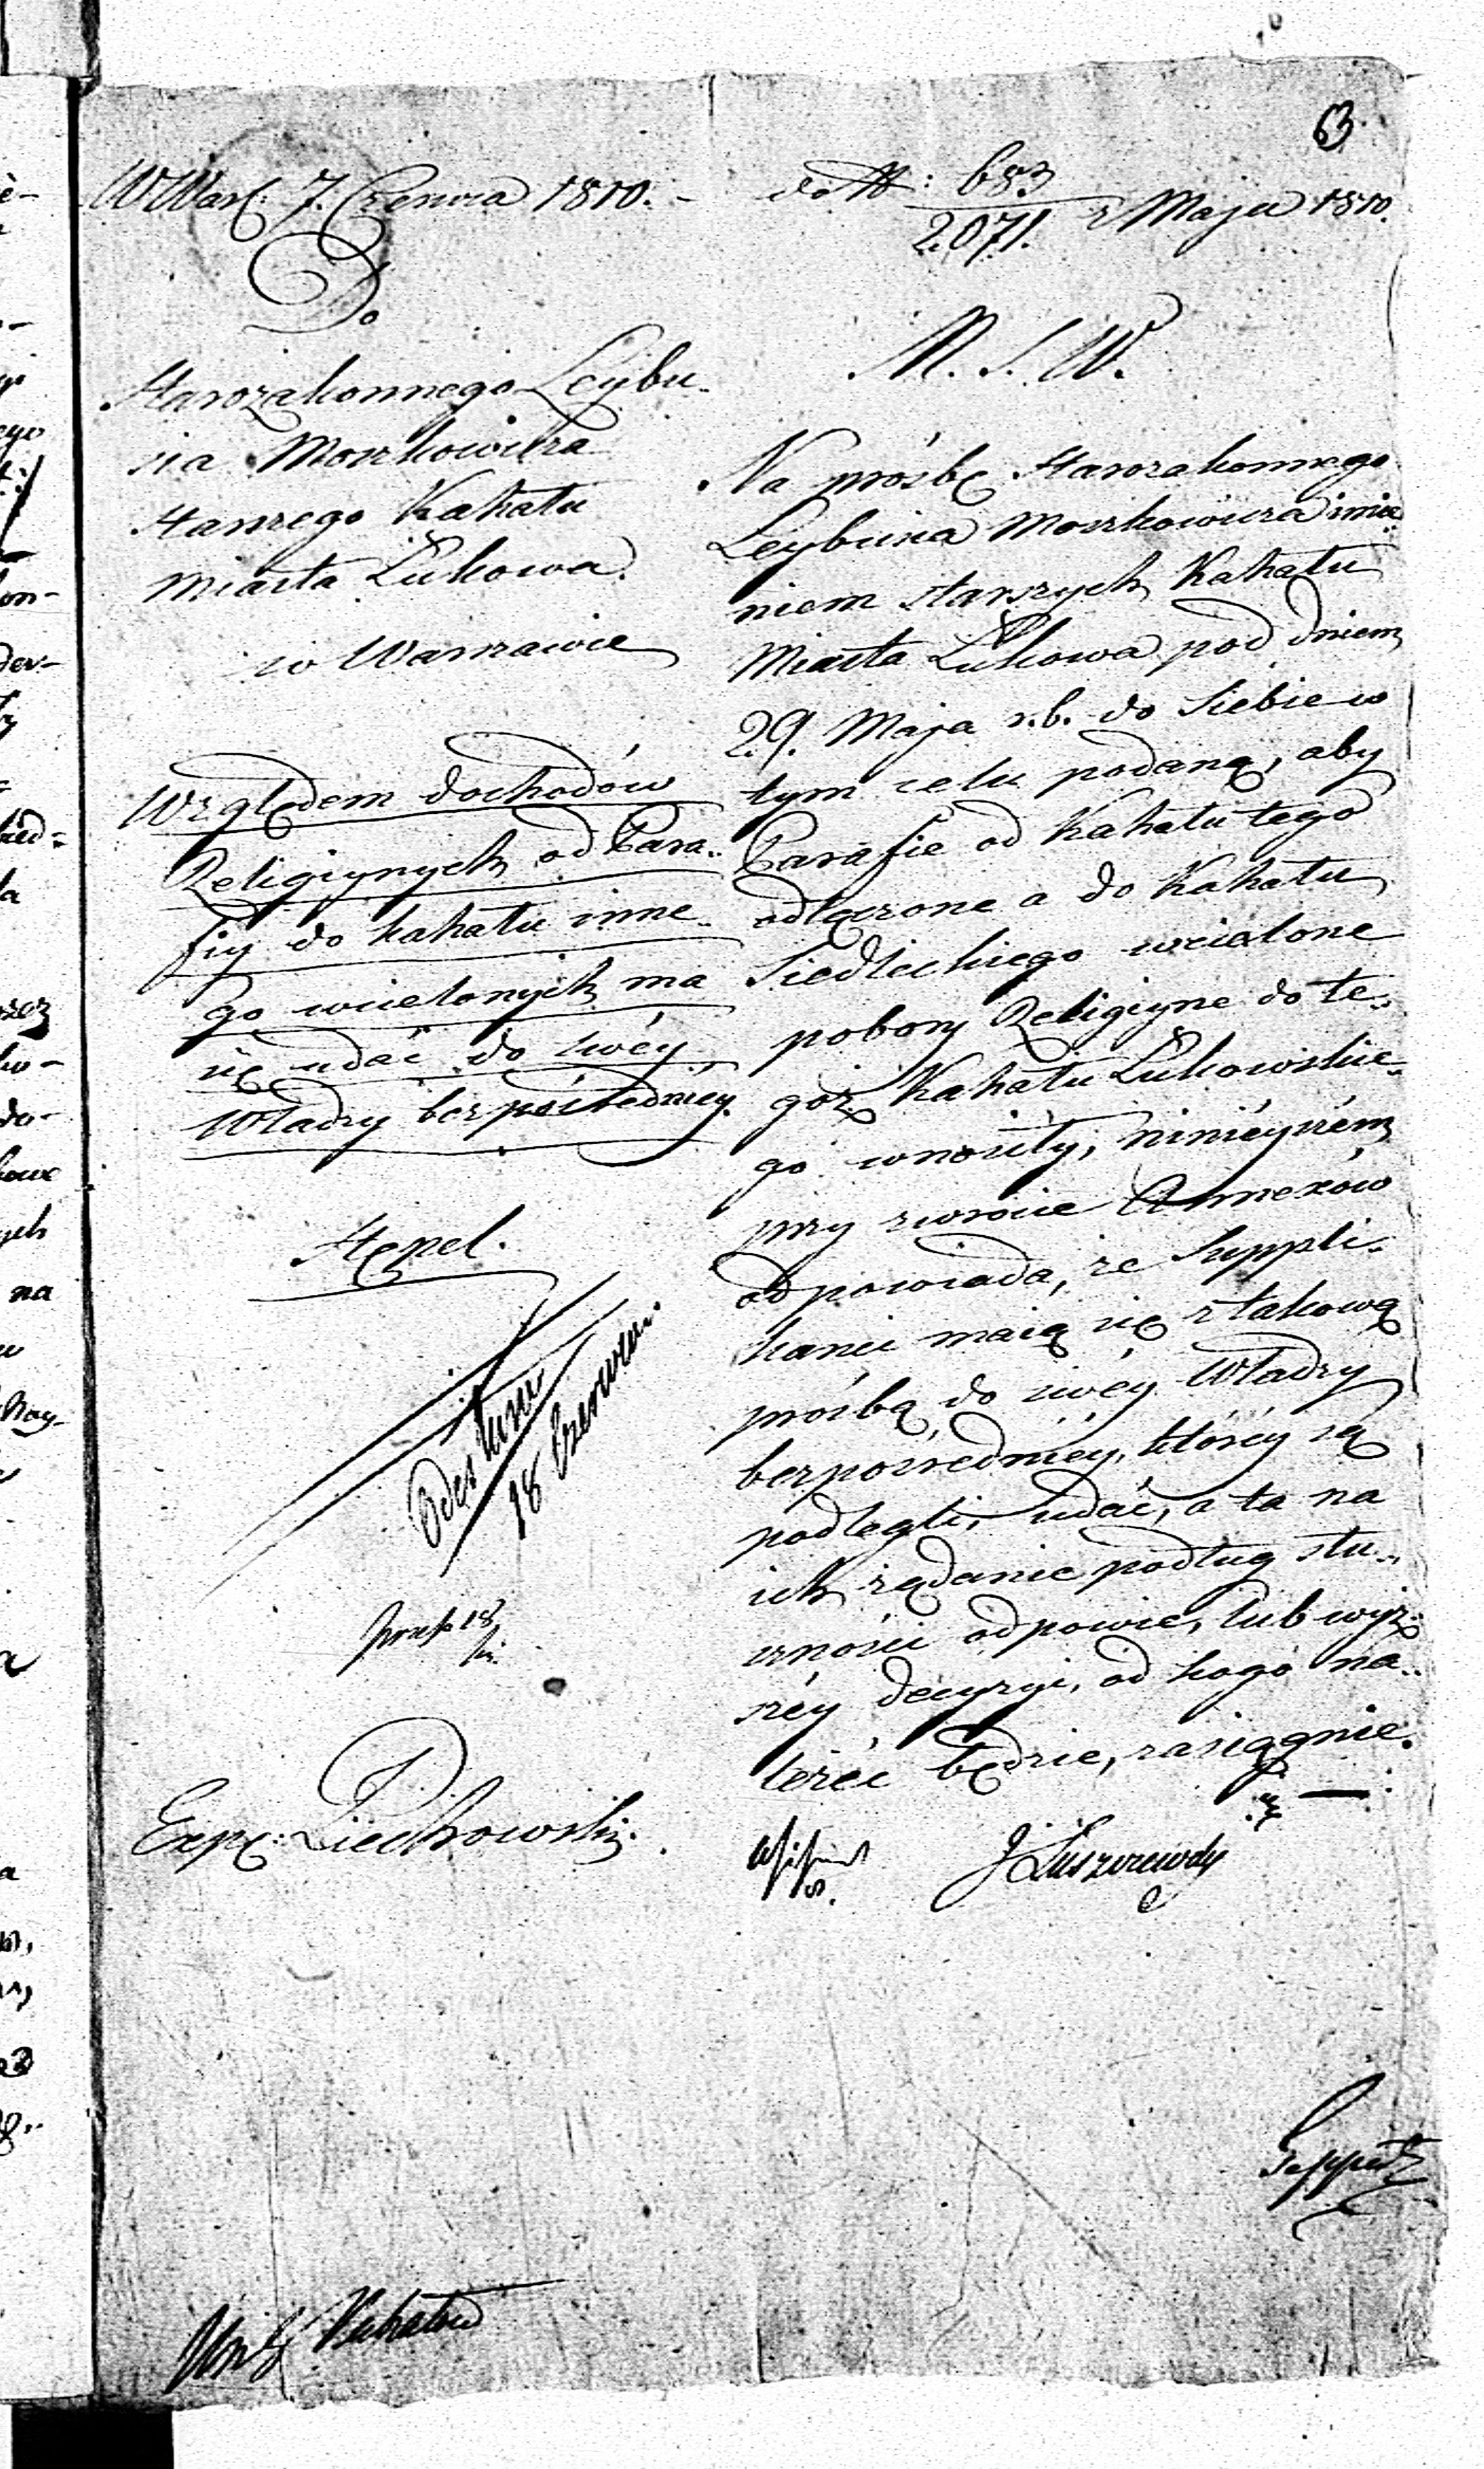 63.
W Wars: 7. Czerwca 1810. -
do N: 683
2071. z Maja 1810.
Do
Starozakonnego Leybu-
sia Moszkowicza
Starszego Kahału
Miasta Łukowa.
w Warszawie
Względem dochodów
Religiynych od Para-
fiy do kahału inne-
go wcielonych ma
się udać do swéy
Władzy bezpośredniéy.
Stępel.
18 Czerwca
Exp: Piechowski.
M. S. W.
Na prośbę Starozakonnego
Leybusia Moszkowicza imie-
niem starszych Kahału
Miasta Łukowa pod dniem
29. Maja r.b. do Siebie w
tym celu podaną, aby
Parafie od Kahału tego
odłączone a do Kahału
Siedleckiego wcielone
pobory Religiyne do te-
goż Kahału Łukowskie-
go wnosiły, ninieyszém
przy zwrocie Annexów
odpowiada, że Suppli-
kanci maią się z takową
prośbą do swéy Władzy
bezpośredniéy, któréy są
podlegli, udać, a ta na
ich żądanie podług słu-
szności odpowie, lub wyż-
széy decyzyi, od kogo na-
leżéć będzie, zasiągnie.
J Łuszczewski
Kahałów